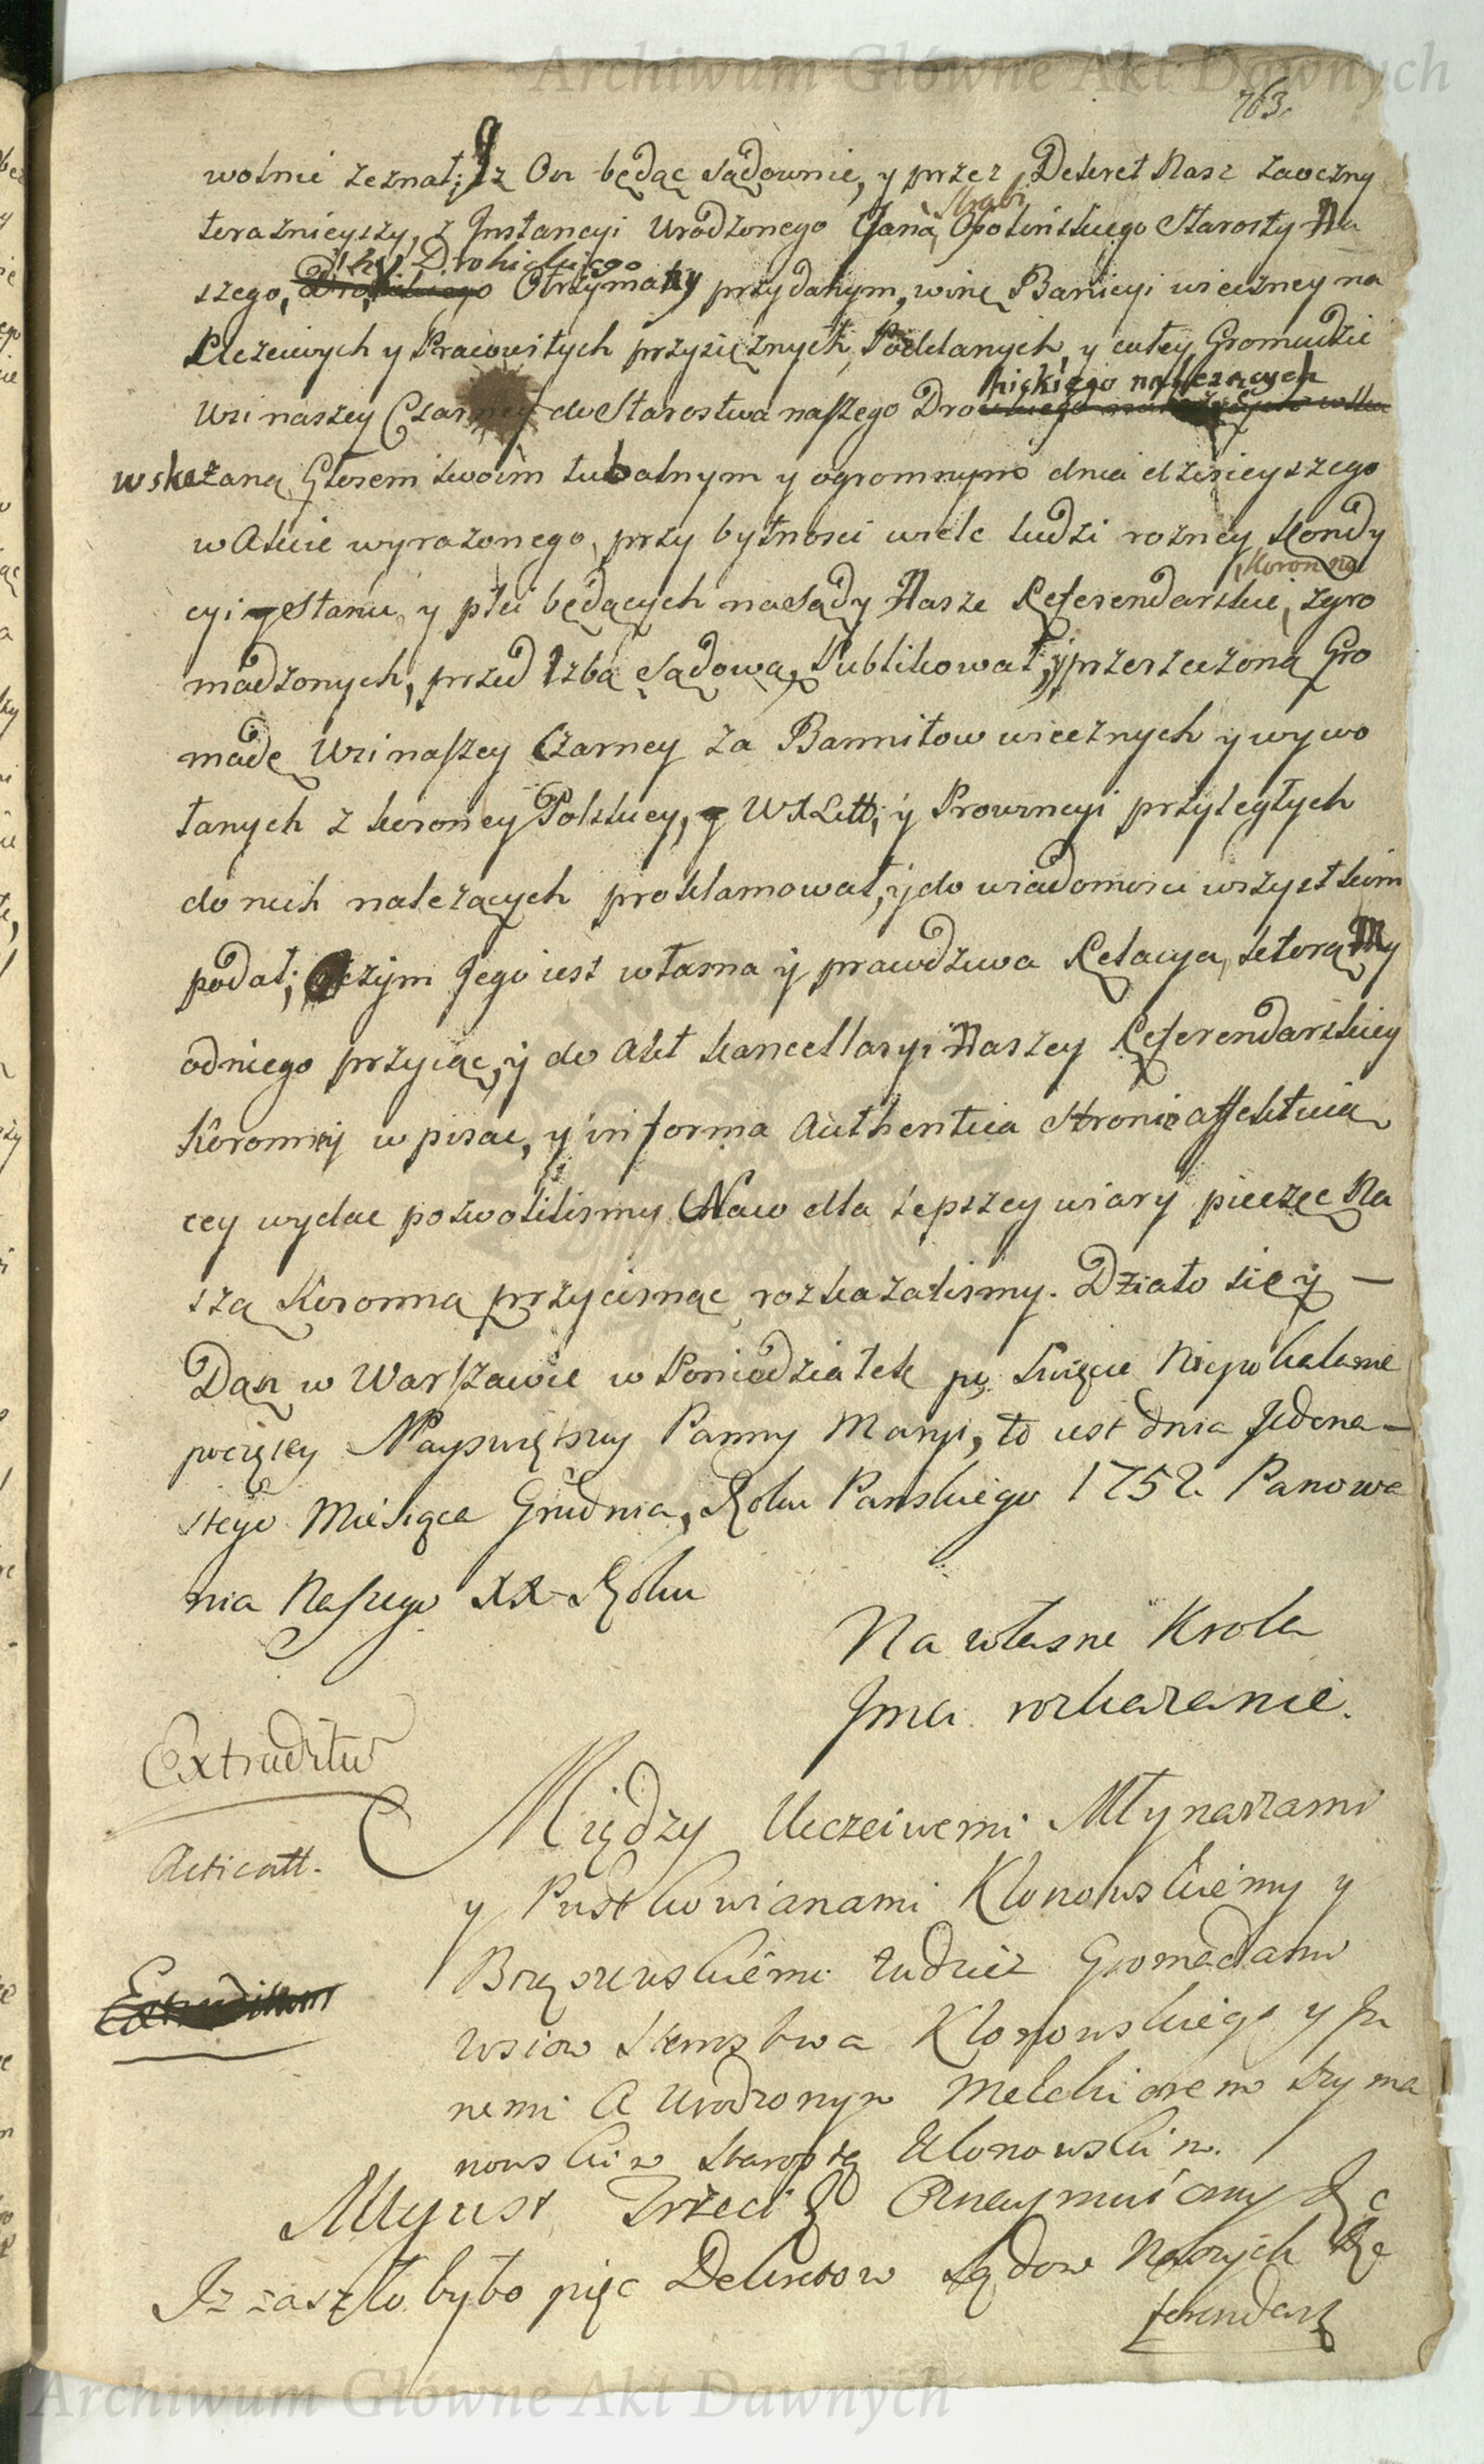 Archiwum Główne Akt Dawnych
763.
wolnie zeznał; Iz On będąc sądownie, y przez Dekret Nasz zaoczny
teraznieyszy, z Instancyi Urodzonego Jana Hrabi Opolinskiego Starosty Na
szego, Drohickiego Otrzymany przydanym, winę Banicyi wieczney na
Uczciwych y Pracowitych przysięznych, Poddanych, y całey Gromadzie
Wsi naszey Czarney do Starostwa naszego Drohickiego nalezących
wskazaną Głosem swoim tubalnym y ogromnym dnia dzisieyszego
w Akcie wyrazonego, przy bytnosci wiele ludzi rozney Kondy
cyi y Stanu, y płci będących na Sądy Nasze Referendarskie, Koronne zgro
madzonych, przed Izbą Sądową, Publikował, y przerzeczoną Gro
madę Wsi naszey Czarney za Bannitow wiecznych y wywo
łanych z Korony Polskiey, y WXLitt; y Prowincyi przyległych
do nich nalezących proklamował, y do wiadomosci wszystkim
podał; Oczym Jego iest własna y prawdziwa Relacya, ktorą My
od niego przyiąc, y do Akt Kancellaryi Naszey Referendarskiey
Koronney wpisac, y in forma Authentica Stronie affektuią
cey wydac pozwolilismy. Naco dla lepszey wiary pieczęc Na
szą Koronną przycisnąc rozkazalismy. Działo się y —
Dan w Warszawie w Poniedziałek po Swięcie Niepokalanie
poczętey Nayswiętszey Panny Maryi, to iest dnia Jedena-
stego Miesiąca Grudnia, Roku Panskiego 1752. Panowa
nia Naszego XX Roku
Na własne Krola
Jmci rozkazanie.
Extraditum
Acticatt.
Między Uczciwemi Młynarzami
y Pustkowianami Klonowskiemy y
Brzęszewskiemi tudziez Gromadami
Wsiow Starostwa Klonowskiego y In
nemi A Urodzonym Melchiorem Szyma
nowskim Starostą Klonowskim.
August Trzeci Oznaymuiemy Iz
Iz zaszło było pięc Dekretow Sądow Naszych Re
ferendarz
Archiwum Główne Akt Dawnych